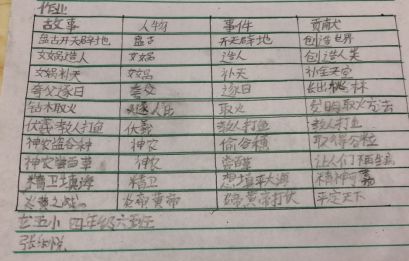 作业
故事 人物 事件 贡献
盘古开天辟地 盘古 开天辟地 创造世界
女娲造人 女娲 造人 创造人类
女娲补天 女娲 补天 补全天空
夸父逐日 夸父 逐日 长出桃林
钻木取火 燧人氏 取火 发明取火方法
伏羲教人打鱼 伏羲 教人打鱼 教人打鱼
神农盗谷种 神农 偷谷穗 取得谷粒
神农尝百草 神农 尝百草 让人们
精卫填海 精卫 想填平大海 精神可嘉
炎黄之战 炎帝黄帝 炎帝黄帝打仗 平定天下
五小 四年级六班
张